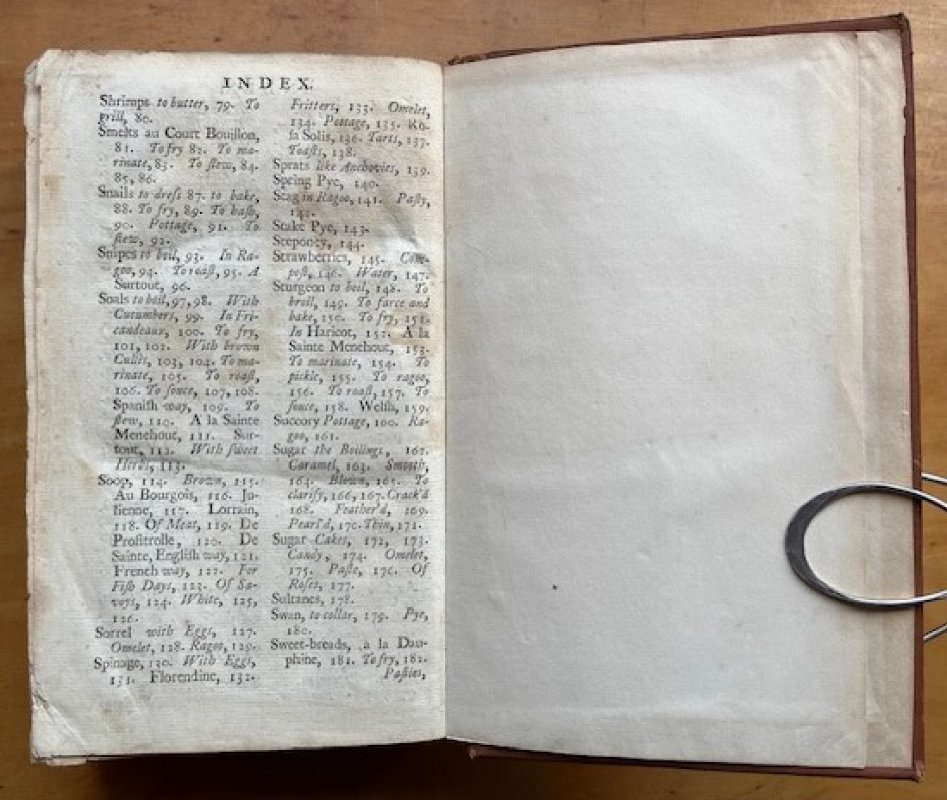 INDEX.
Shrimps to butter, 79. To
grill, 80.
Smelts au Court Bouillon,
81. To fry 82. To ma-
rinate, 83. To ſtew, 84.
85, 86.
Snails to dreſs 87. to bake,
88. To fry, 89. To haſh,
90. Pottage, 91. To
ſtew, 92.
Snipes to boil, 93. In Ra-
goo, 94. To roaſt, 95. A
Surtout, 96.
Soals to boil, 97, 98. With
Cucumbers, 99. In Fri-
candeaux, 100. To fry,
101, 102. With brown
Cullis, 103, 104. To ma-
rinate, 105. To roaſt,
106. To ſouce, 107, 108.
Spaniſh way, 109. To
ſtew, 110. A la Sainte
Menehout, 111. Sur-
tout, 112. With ſweet
Herbs, 113.
Soop, 114. Brown, 115.
Au Bourgois, 116. Ju-
lienne, 117. Lorrain,
118. Of Meat, 119. De
Profitrolle, 120. De
Sainte, Engliſh way, 121.
French way, 122. For
Fiſh Days, 123. Of Sa-
voys, 124. White, 125,
126.
Sorrel with Eggs, 127.
Omelet, 128. Ragoo, 129.
Spinage, 130. With Eggs,
131. Florendine, 132.
Fritters, 133. Omelet,
134. Pottage, 135. Ro-
ſa Solis, 136. Tarts, 137.
Toaſts, 138.
Sprats like Anchovies, 139.
Spring Pye, 140.
Stag in Ragoo, 141. Paſty,
142.
Stake Pye, 143.
Steponey, 144.
Strawberries, 145. Com-
poſt, 146. Water, 147.
Sturgeon to boil, 148. To
broil, 149. To farce and
bake, 150. To fry, 151.
In Haricot, 152. A la
Sainte Menehout, 153.
To marinate, 154. To
pickle, 155. To ragoo,
156. To roaſt, 157. To
ſouce, 158. Welſh, 159.
Succory Pottage, 160. Ra-
goo, 161.
Sugar the Boilings, 162.
Caramel, 163. Smooth,
164. Blown, 165. To
clarify, 166, 167. Crack'd
168. Feather'd, 169.
Pearl'd, 170. Thin, 171.
Sugar Cakes, 172, 173.
Candy, 174. Omelet,
175. Paſte, 176. Of
Roſes, 177.
Sultanes, 178.
Swan, to collar, 179. Pye,
180.
Sweet-breads, a la Dau-
phine, 181. To fry, 182.
Paſties,